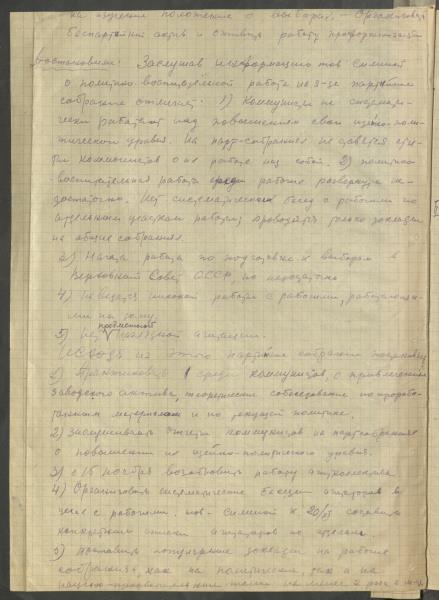 на изучении положение о выборах. – Организовав
беспартийный актив и оживив работу профорганизации
Постановили: Заслушав информацию тов. Силиной
о политико-воспитательной работе на з-де партийное
собрание отмечает: 1) Коммунисты не система-
чески работают над повышением свои идейно-поли-
тического уровня. На парт-собраниях не ставятся отче-
ты коммунистов о их работе над собой. 2) политико-
воспитательная работа среди рабочих развернута не-
достаточно. Нет систематических бесед с рабочими по
отдельным участкам работы проводятся только доклады
на общие собрания.
3) Начата работа по подготовке к выборам в
Верховный Совет СССР, но недостаточно
4) Не ведется массовой работы с рабочими,
ми на дому.
5) Нет наглядной агитации.
Исходя из этого партийное собрание
1) Практиковать среди коммунистов, с привлечением
заводского актива, теоретические собеседования по прорабо-
танным материалам и по текущей политике.
2) Заслушивать отчеты коммунистов на партсобраниях
о повышении их идейно-политического уровня.
3) с 15 ноября возобновить работу агитколлектива
4) Организовать систематические беседы агитаторов в
цехе с рабочими. тов. Силиной к 20/XI составить
конкретный список агитаторов по отделам.
5) поставить популярные доклады на рабочие
собрания как на политические, так и на
научно-просветительные темы не менее 2 раз в м-ц